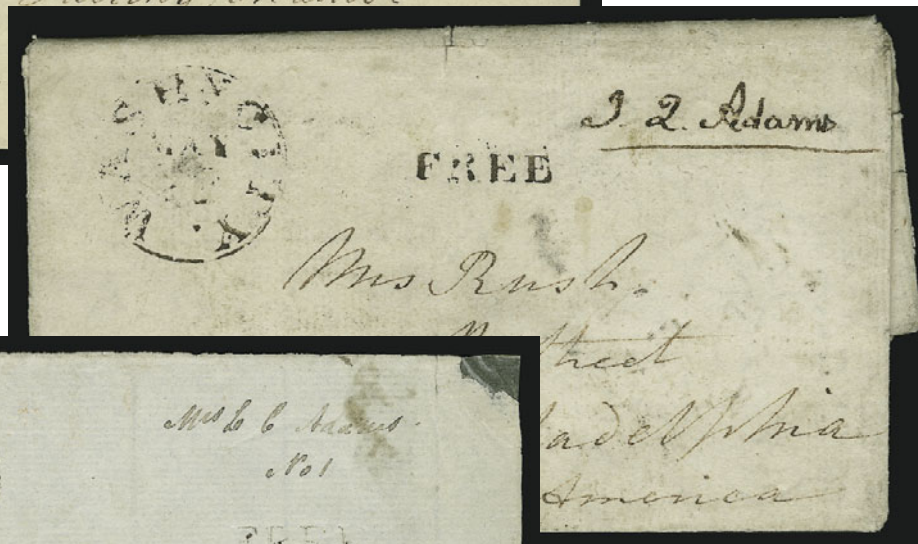 WASHN CITY
MAY
J Q. Adams
FREE
Mrs Rush.
Street
adelphia
America
Mrs L C Adams.
No 1
FREE